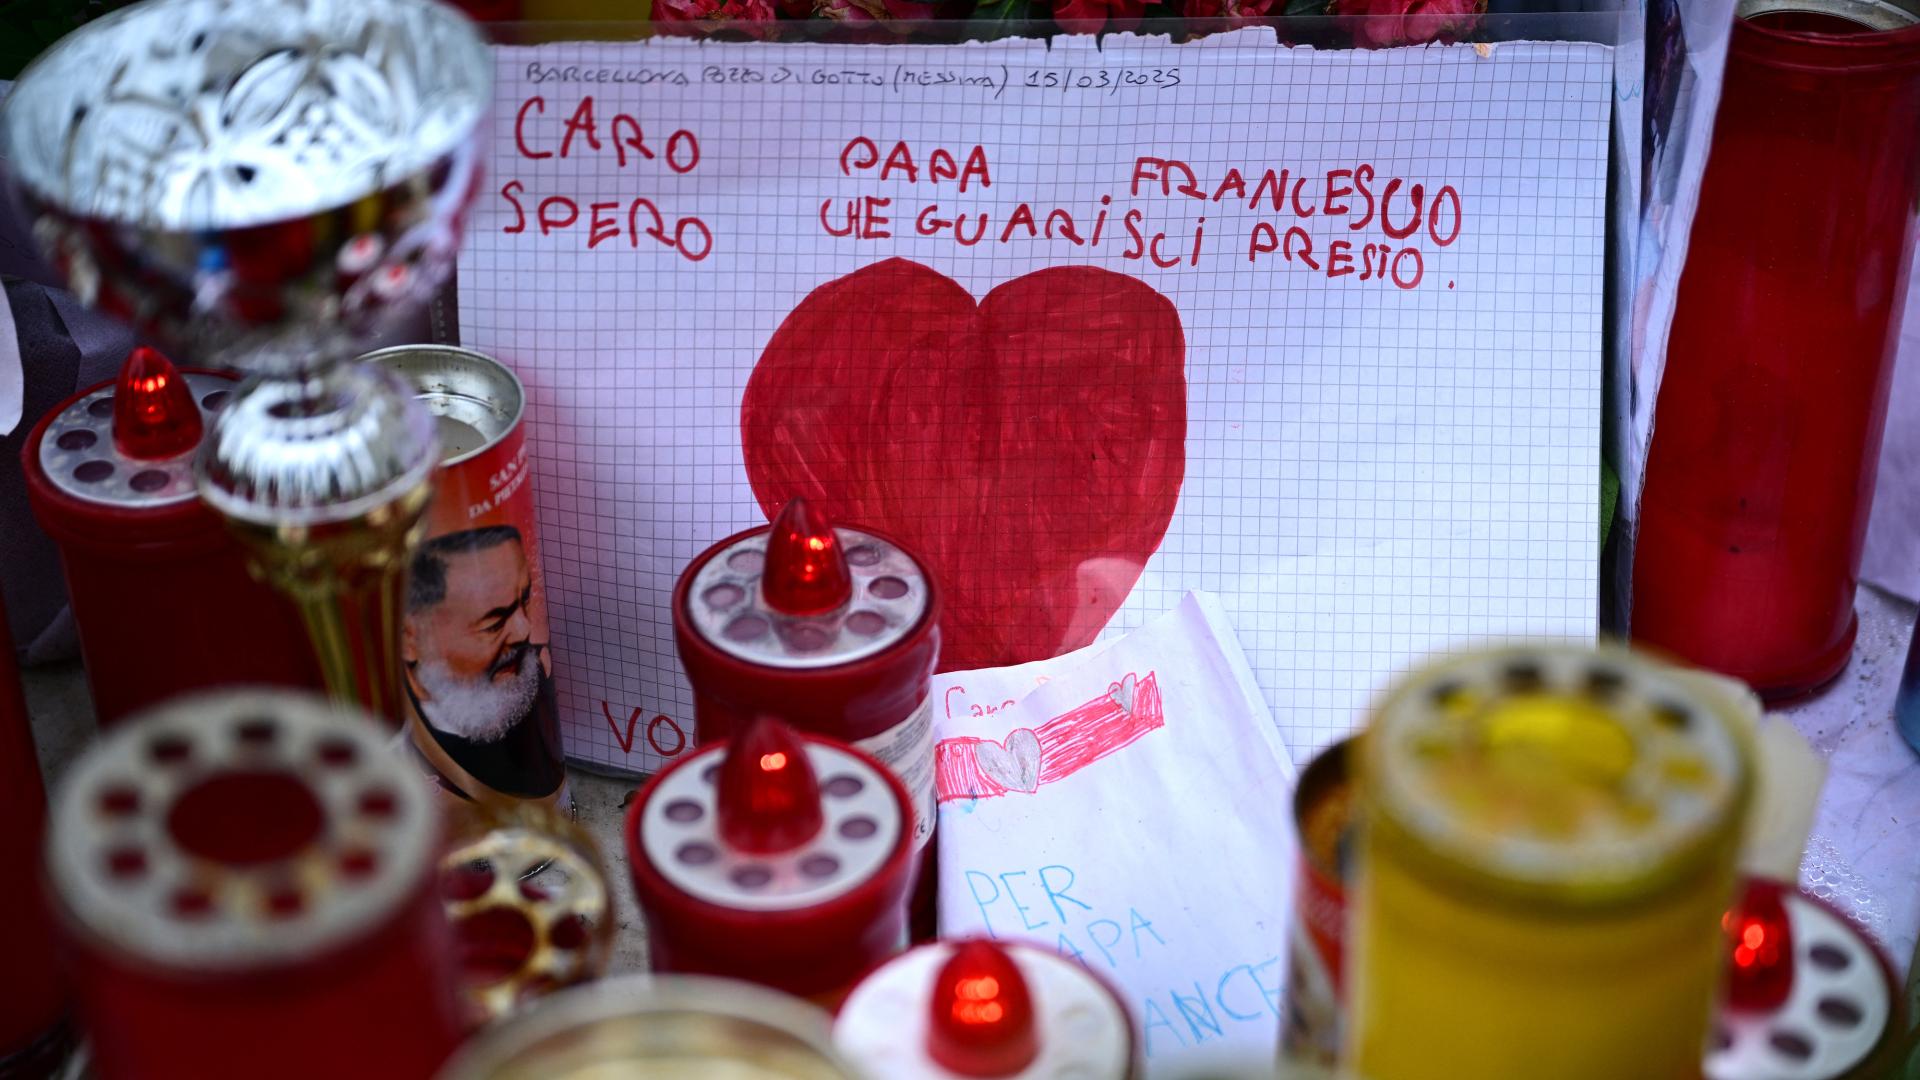 BARCELLONA POZZO DI GOTTO (MESSINA) 15/03/2025
CARO PAPA FRANCESCO
SPERO CHE GUARISCI PRESTO.
SAN P
DA PIETREL
VO
Caro
PER
APA
ANCE